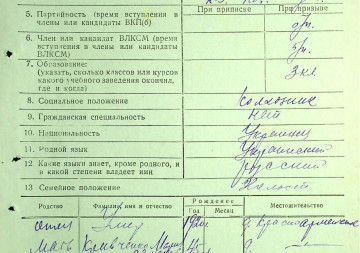 При приписке При призыве
5. Партийность (время вступления в
члены или кандидаты ВКП(б)
б/п.
6. Член или кандидат ВЛКСМ (время
вступления в члены или кандидаты
ВЛКСМ)
б/п.
7. Образование:
(указать, сколько классов или курсов
какого учебного заведения окончил,
где и когда)
3 кл
8. Социальное положение
Колхозник
9. Гражданская специальность
нет
10. Национальность
Украинец
11. Родной язык
Украинский
12 Какие языки знает, кроме родного, и
в какой степени владеет ими
русский
13 Семейное положение
Холост
Родство Фамилия, имя и отчество Рождение Местожительство
Год Месяц
отец
Мать